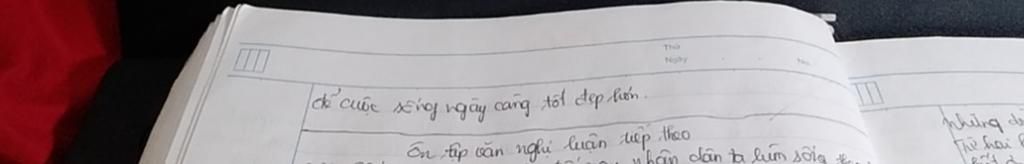 Thứ
Ngày No.
để cuộc sống ngày càng tốt đẹp hơn.
Ôn tập văn nghị luận tiếp theo
nhân dân ta luôn sống
những
Thứ hai